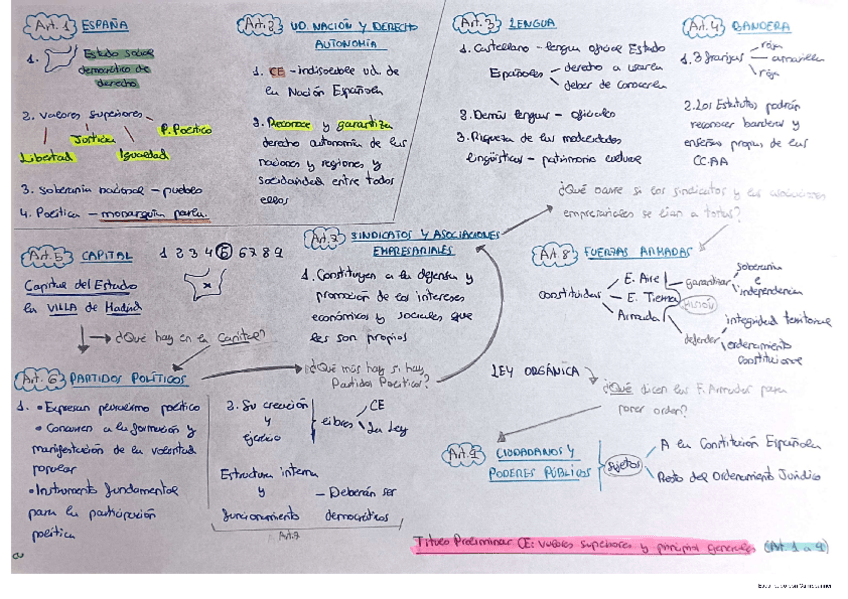 Art. 1 ESPAÑA
1. Estado social
democrático de
derecho
2. Valores superiores
Libertad
Justicia
Igualdad
P. Político
3. Soberanía nacional - pueblo
4. Política - monarquía parla.
Art. 2 UD. NACIÓN Y DERECHO
AUTONOMÍA
1. CE - indisoluble ud. de
la Nación Española
2. Reconoce y garantiza
derecho autonomía de las
naciones y regiones y
solidaridad entre todas
ellas
Art. 3 LENGUA
1. Castellano - lengua oficial Estado
Españoles
derecho a usarla
deber de conocerla
2. Demás lenguas - oficiales
3. Riqueza de las modalidades
lingüísticas - patrimonio cultural
Art. 4 BANDERA
1. 3 franjas
roja
amarilla
roja
2. Los Estatutos podrán
reconocer banderas y
enseñas propias de las
CC.AA
¿Qué ocurre si los sindicatos y las asociaciones
empresariales se lían a tortas?
Art. 5 CAPITAL
1 2 3 4 5 6 7 8 9
Capital del Estado
la VILLA de Madrid
¿Qué hay en la Capital?
Art. 6 PARTIDOS POLÍTICOS
1. • Expresan pluralismo político
• Concurren a la formación y
manifestación de la voluntad
popular
• Instrumento fundamental
para la participación
política
2. Su creación
y
ejercicio
libres
CE
La Ley
Estructura interna
y
funcionamiento
- Deberán ser
democráticos
Art. 7
¿Qué más hay si hay
Partidos Políticos?
Art. 7 SINDICATOS Y ASOCIACIONES
EMPRESARIALES
1. Constituyen a la defensa y
promoción de los intereses
económicos y sociales que
les son propios
Art. 8 FUERZAS ARMADAS
Constituidas
E. Aire
E. Tierra
Armada
misión
garantizar
soberanía
e
independencia
defender
integridad territorial
ordenamiento
constitucional
LEY ORGÁNICA
¿Qué dicen las F. Armadas para
poner orden?
Art. 9 CIUDADANOS Y
PODERES PÚBLICOS
Sujetos
A la Constitución Española
Resto del Ordenamiento Jurídico
Título Preliminar CE: valores superiores y principios generales (Art. 1 a 9)